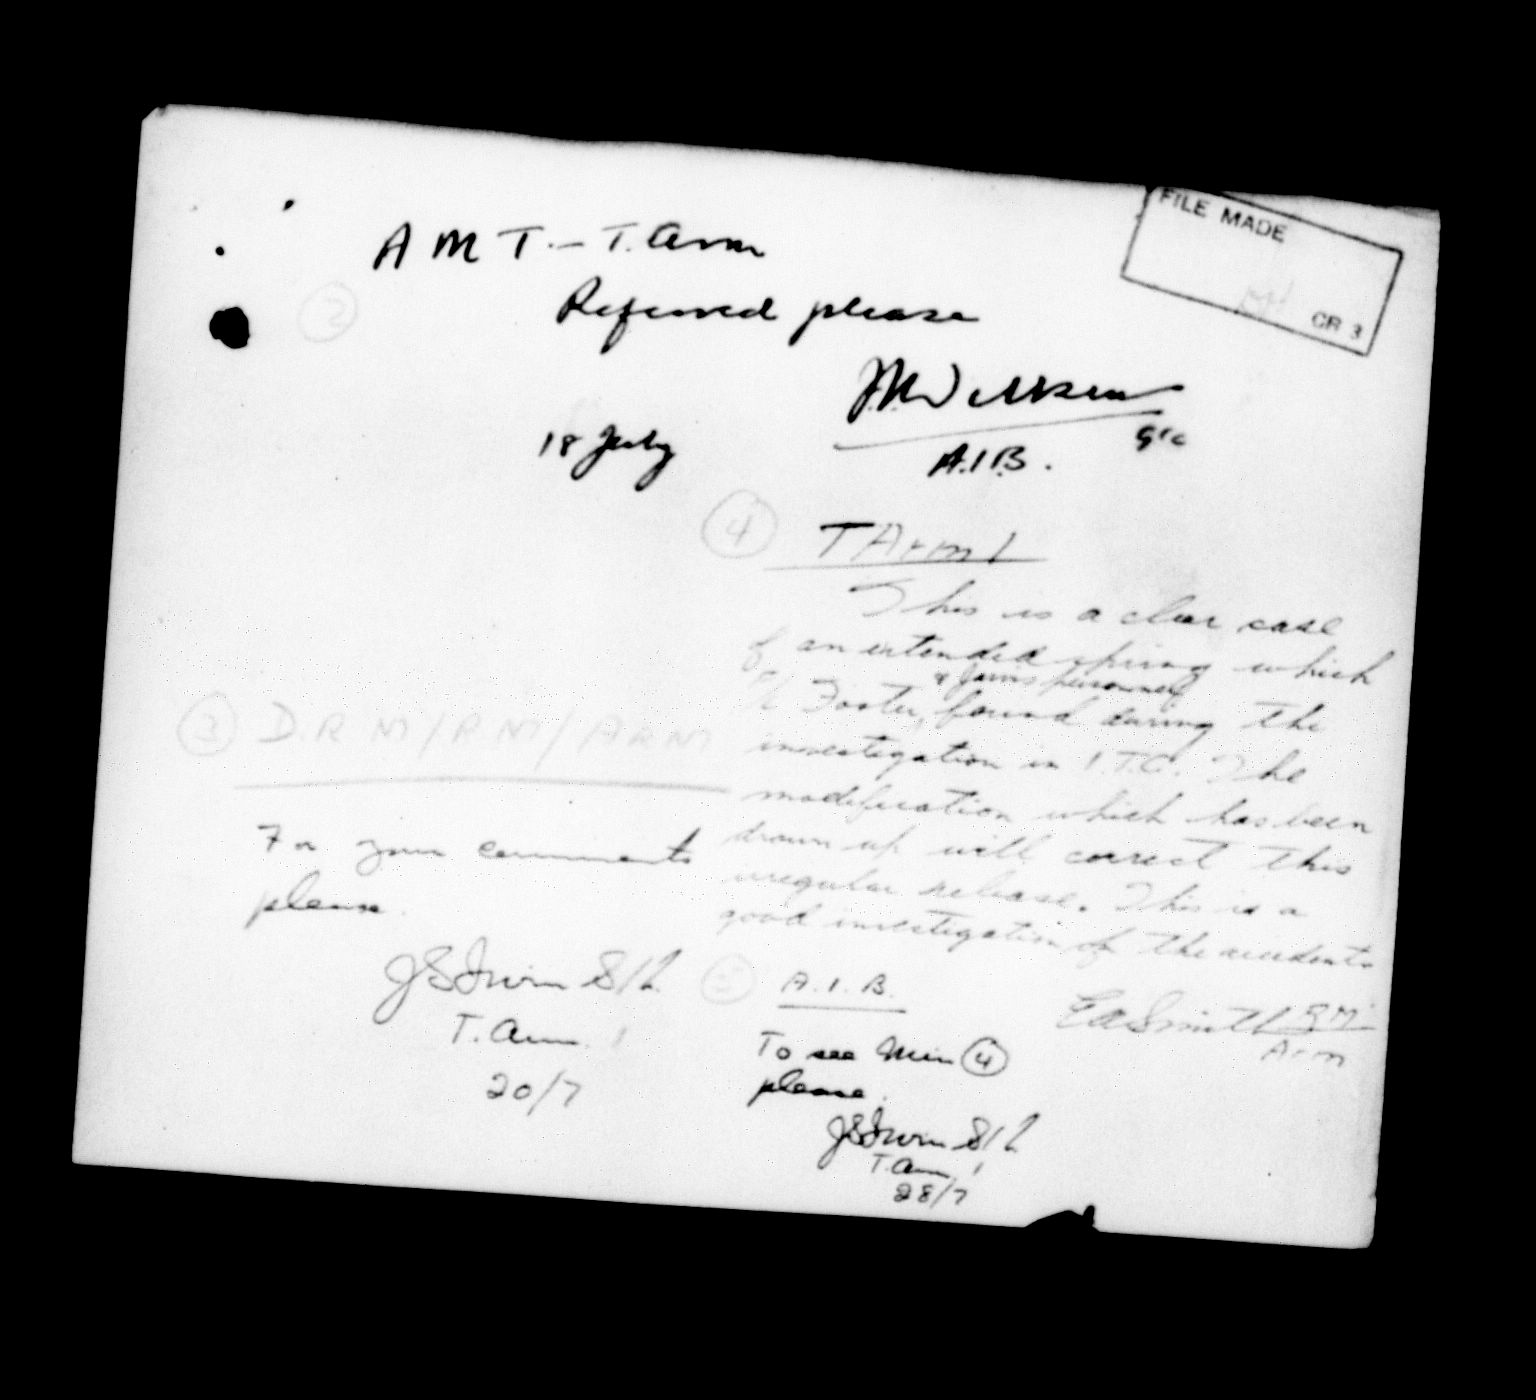 FILE MADE
CR 3
A M T. – T. Arm
②
Referred please
18 July
A.I.B.
G/C
③ D.R M/R M/A R M
For your comments
please.
JS Irwin S/L
T. Arm. 1
20/7
④ T Arm 1
This is a clear case
of an extended spring which
Foster, & Jarvis personnel found during the
investigation in I.T.C. The
modification which has been
drawn up will correct this
irregular release. This is a
good investigation of the accidents
EA Smith
Arm
⑤ A.I.B.
To see Min ④
please.
JS Irwin S/L
T. Arm 1
28/7